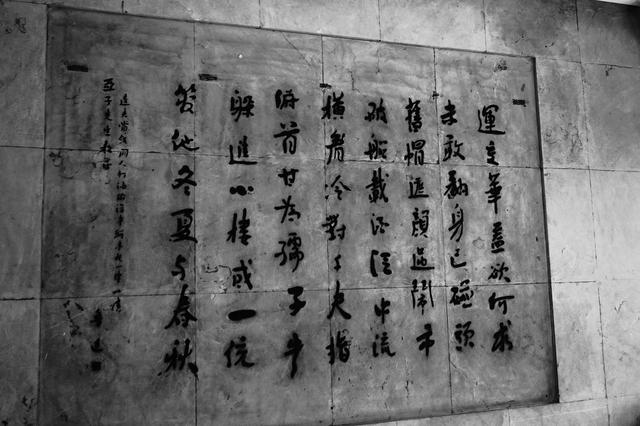 運交華蓋欲何求
未敢翻身已碰頭
舊帽遮顏過鬧市
破船載酒泛中流
橫眉冷對千夫指
俯首甘為孺子牛
躲進小樓成一統
管他冬夏與春秋
達夫賞飯閑人打油偷得半聯湊成一律以請
亞子先生教正
魯迅